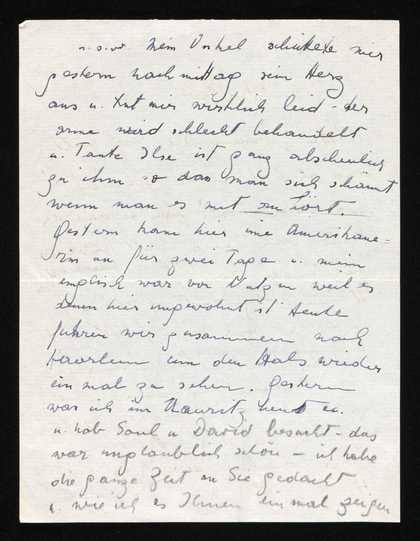 u.s.w. Mein Onkel schüttete mir
gestern nachmittag sein Herz
aus u. tut mir wirklich leid - der
arme wird schlecht behandelt
u. Tante Ilse ist ganz abscheulich
zu ihm so dass man sich schämt
wenn man es mit anhört.
Gestern kam hier eine Amerikane-
rin an für zwei Tage u. mein
englisch war von Nutzen weil es
hier ungewohnt ist. Heute
fuhren wir zusammen nach
Haarlem um den Hals wieder
ein mal zu sehen. Gestern
war ich im Mauritz
u. hab Saul u David besucht - das
war unglaublich schön - ich habe
die ganze Zeit an Sie gedacht
u. wie ich es Ihnen ein mal zeigen